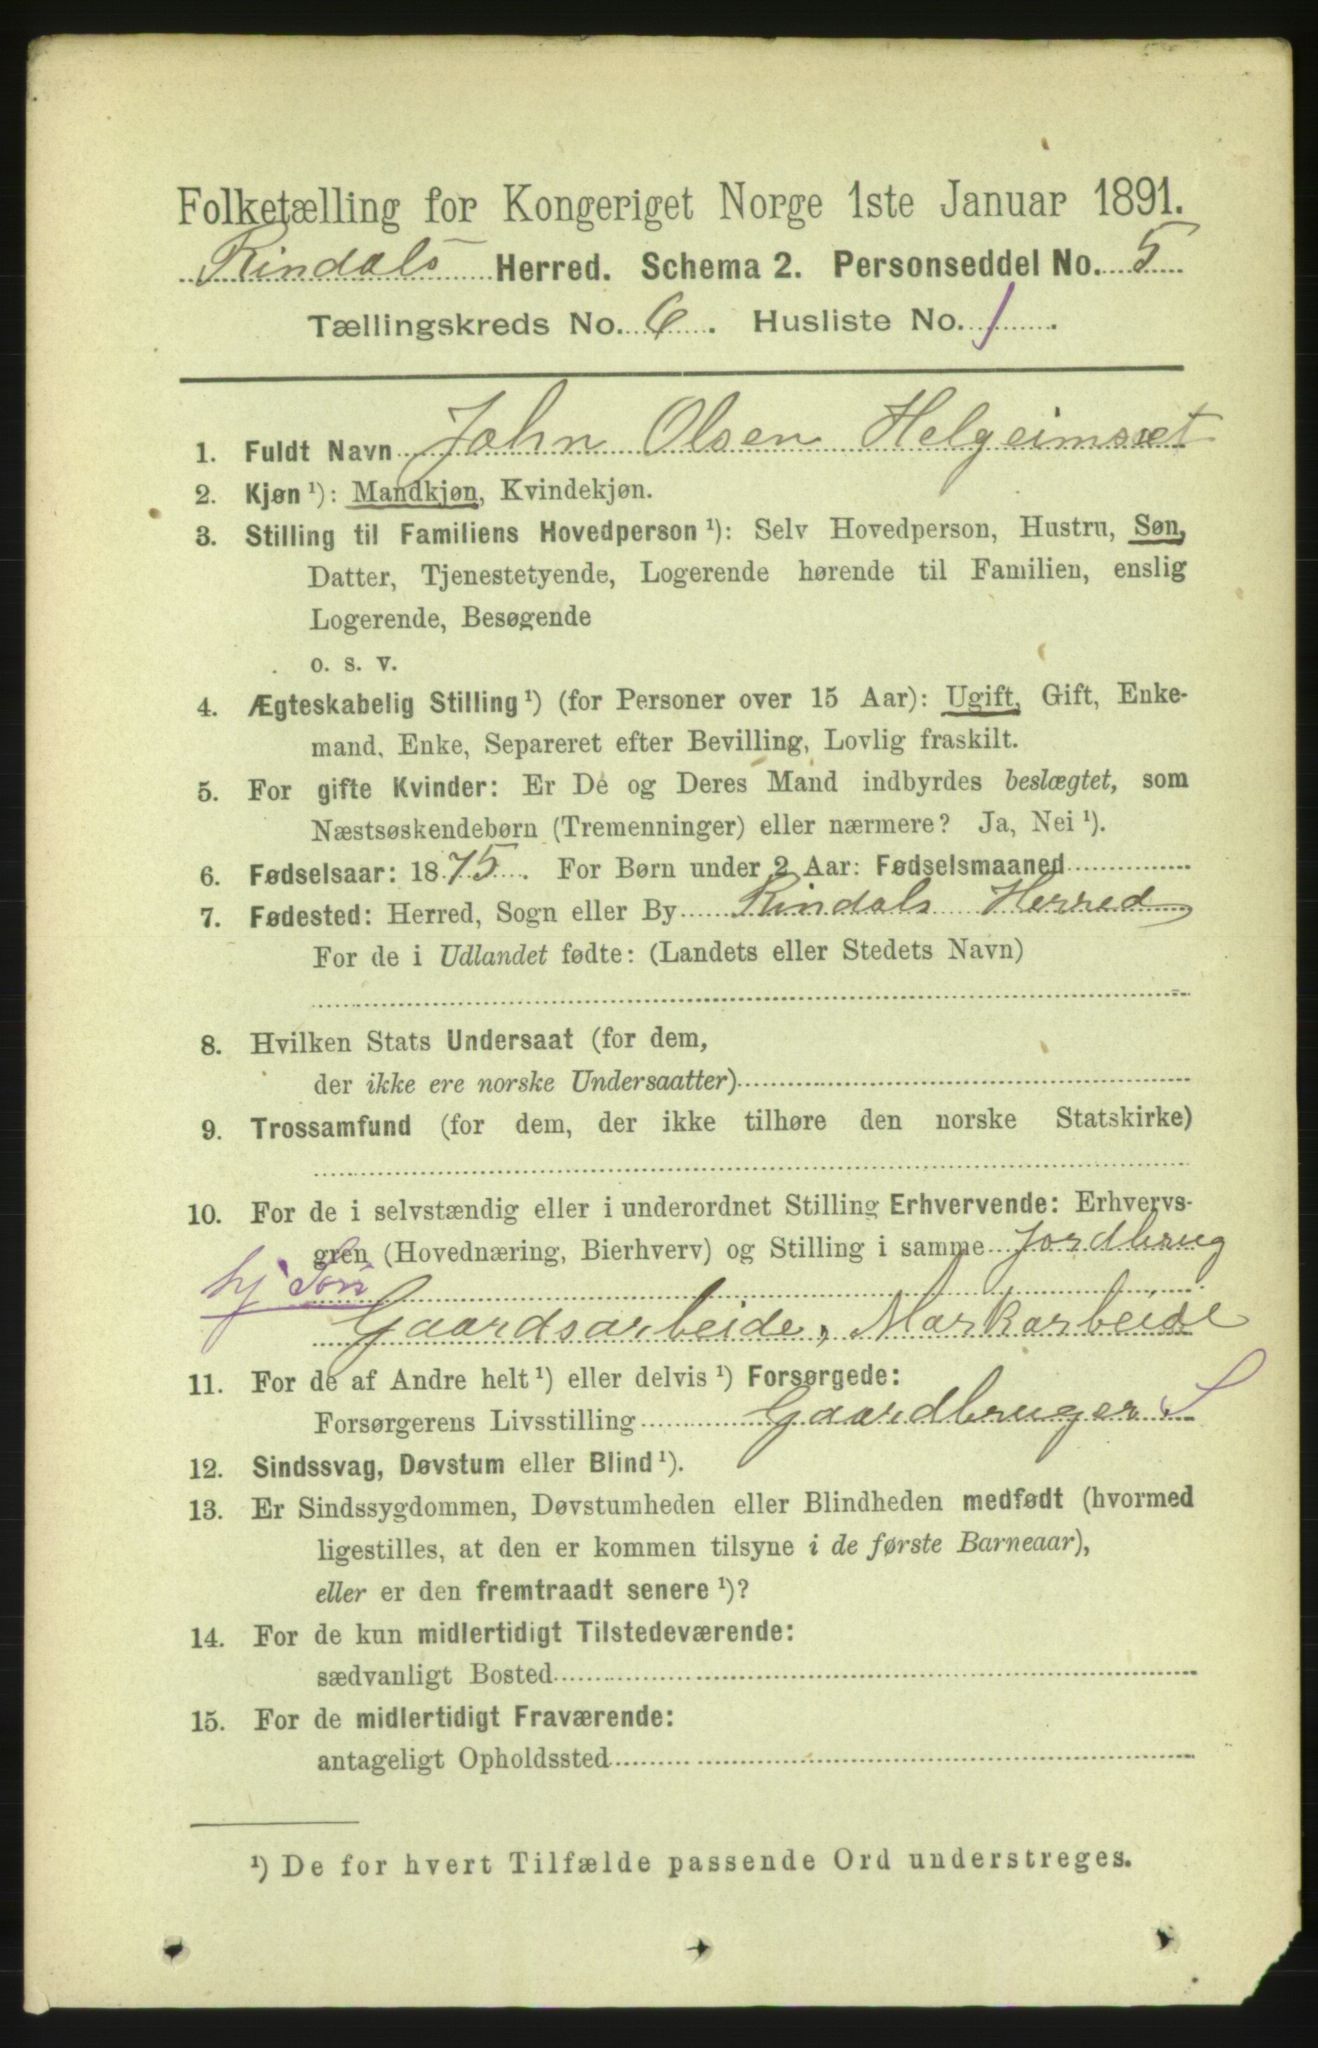 Folketælling for Kongeriget Norge 1ste Januar 1891.
Rindals Herred. Schema 2. Personseddel No. 5
Tællingskreds No. 6. Husliste No. 1.
1. Fuldt Navn John Olsen Helgeimsæt
2. Kjøn ¹): Mandkjøn, Kvindekjøn.
3. Stilling til Familiens Hovedperson ¹): Selv Hovedperson, Hustru, Søn,
Datter, Tjenestetyende, Logerende hørende til Familien, enslig
Logerende, Besøgende
o. s. v.
4. Ægteskabelig Stilling ¹) (for Personer over 15 Aar): Ugift, Gift, Enke-
mand, Enke, Separeret efter Bevilling, Lovlig fraskilt.
5. For gifte Kvinder: Er De og Deres Mand indbyrdes beslægtet, som
Næstsøskendebørn (Tremenninger) eller nærmere? Ja, Nei ¹).
6. Fødselsaar: 1875. For Børn under 2 Aar: Fødselsmaaned
7. Fødested: Herred, Sogn eller By Rindals Herred
For de i Udlandet fødte: (Landets eller Stedets Navn)
8. Hvilken Stats Undersaat (for dem,
der ikke ere norske Undersaatter)
9. Trossamfund (for dem, der ikke tilhøre den norske Statskirke)
10. For de i selvstændig eller i underordnet Stilling Erhvervende: Erhvervs-
gren (Hovednæring, Bierhverv) og Stilling i samme Jordbrug
hj Søn
Gaardsarbeide, Markarbeide
11. For de af Andre helt ¹) eller delvis ¹) Forsørgede:
Forsørgerens Livsstilling Gaardbruger S
12. Sindssvag, Døvstum eller Blind ¹).
13. Er Sindssygdommen, Døvstumheden eller Blindheden medfødt (hvormed
ligestilles, at den er kommen tilsyne i de første Barneaar),
eller er den fremtraadt senere ¹)?
14. For de kun midlertidigt Tilstedeværende:
sædvanligt Bosted
15. For de midlertidigt Fraværende:
antageligt Opholdssted
¹) De for hvert Tilfælde passende Ord understreges.